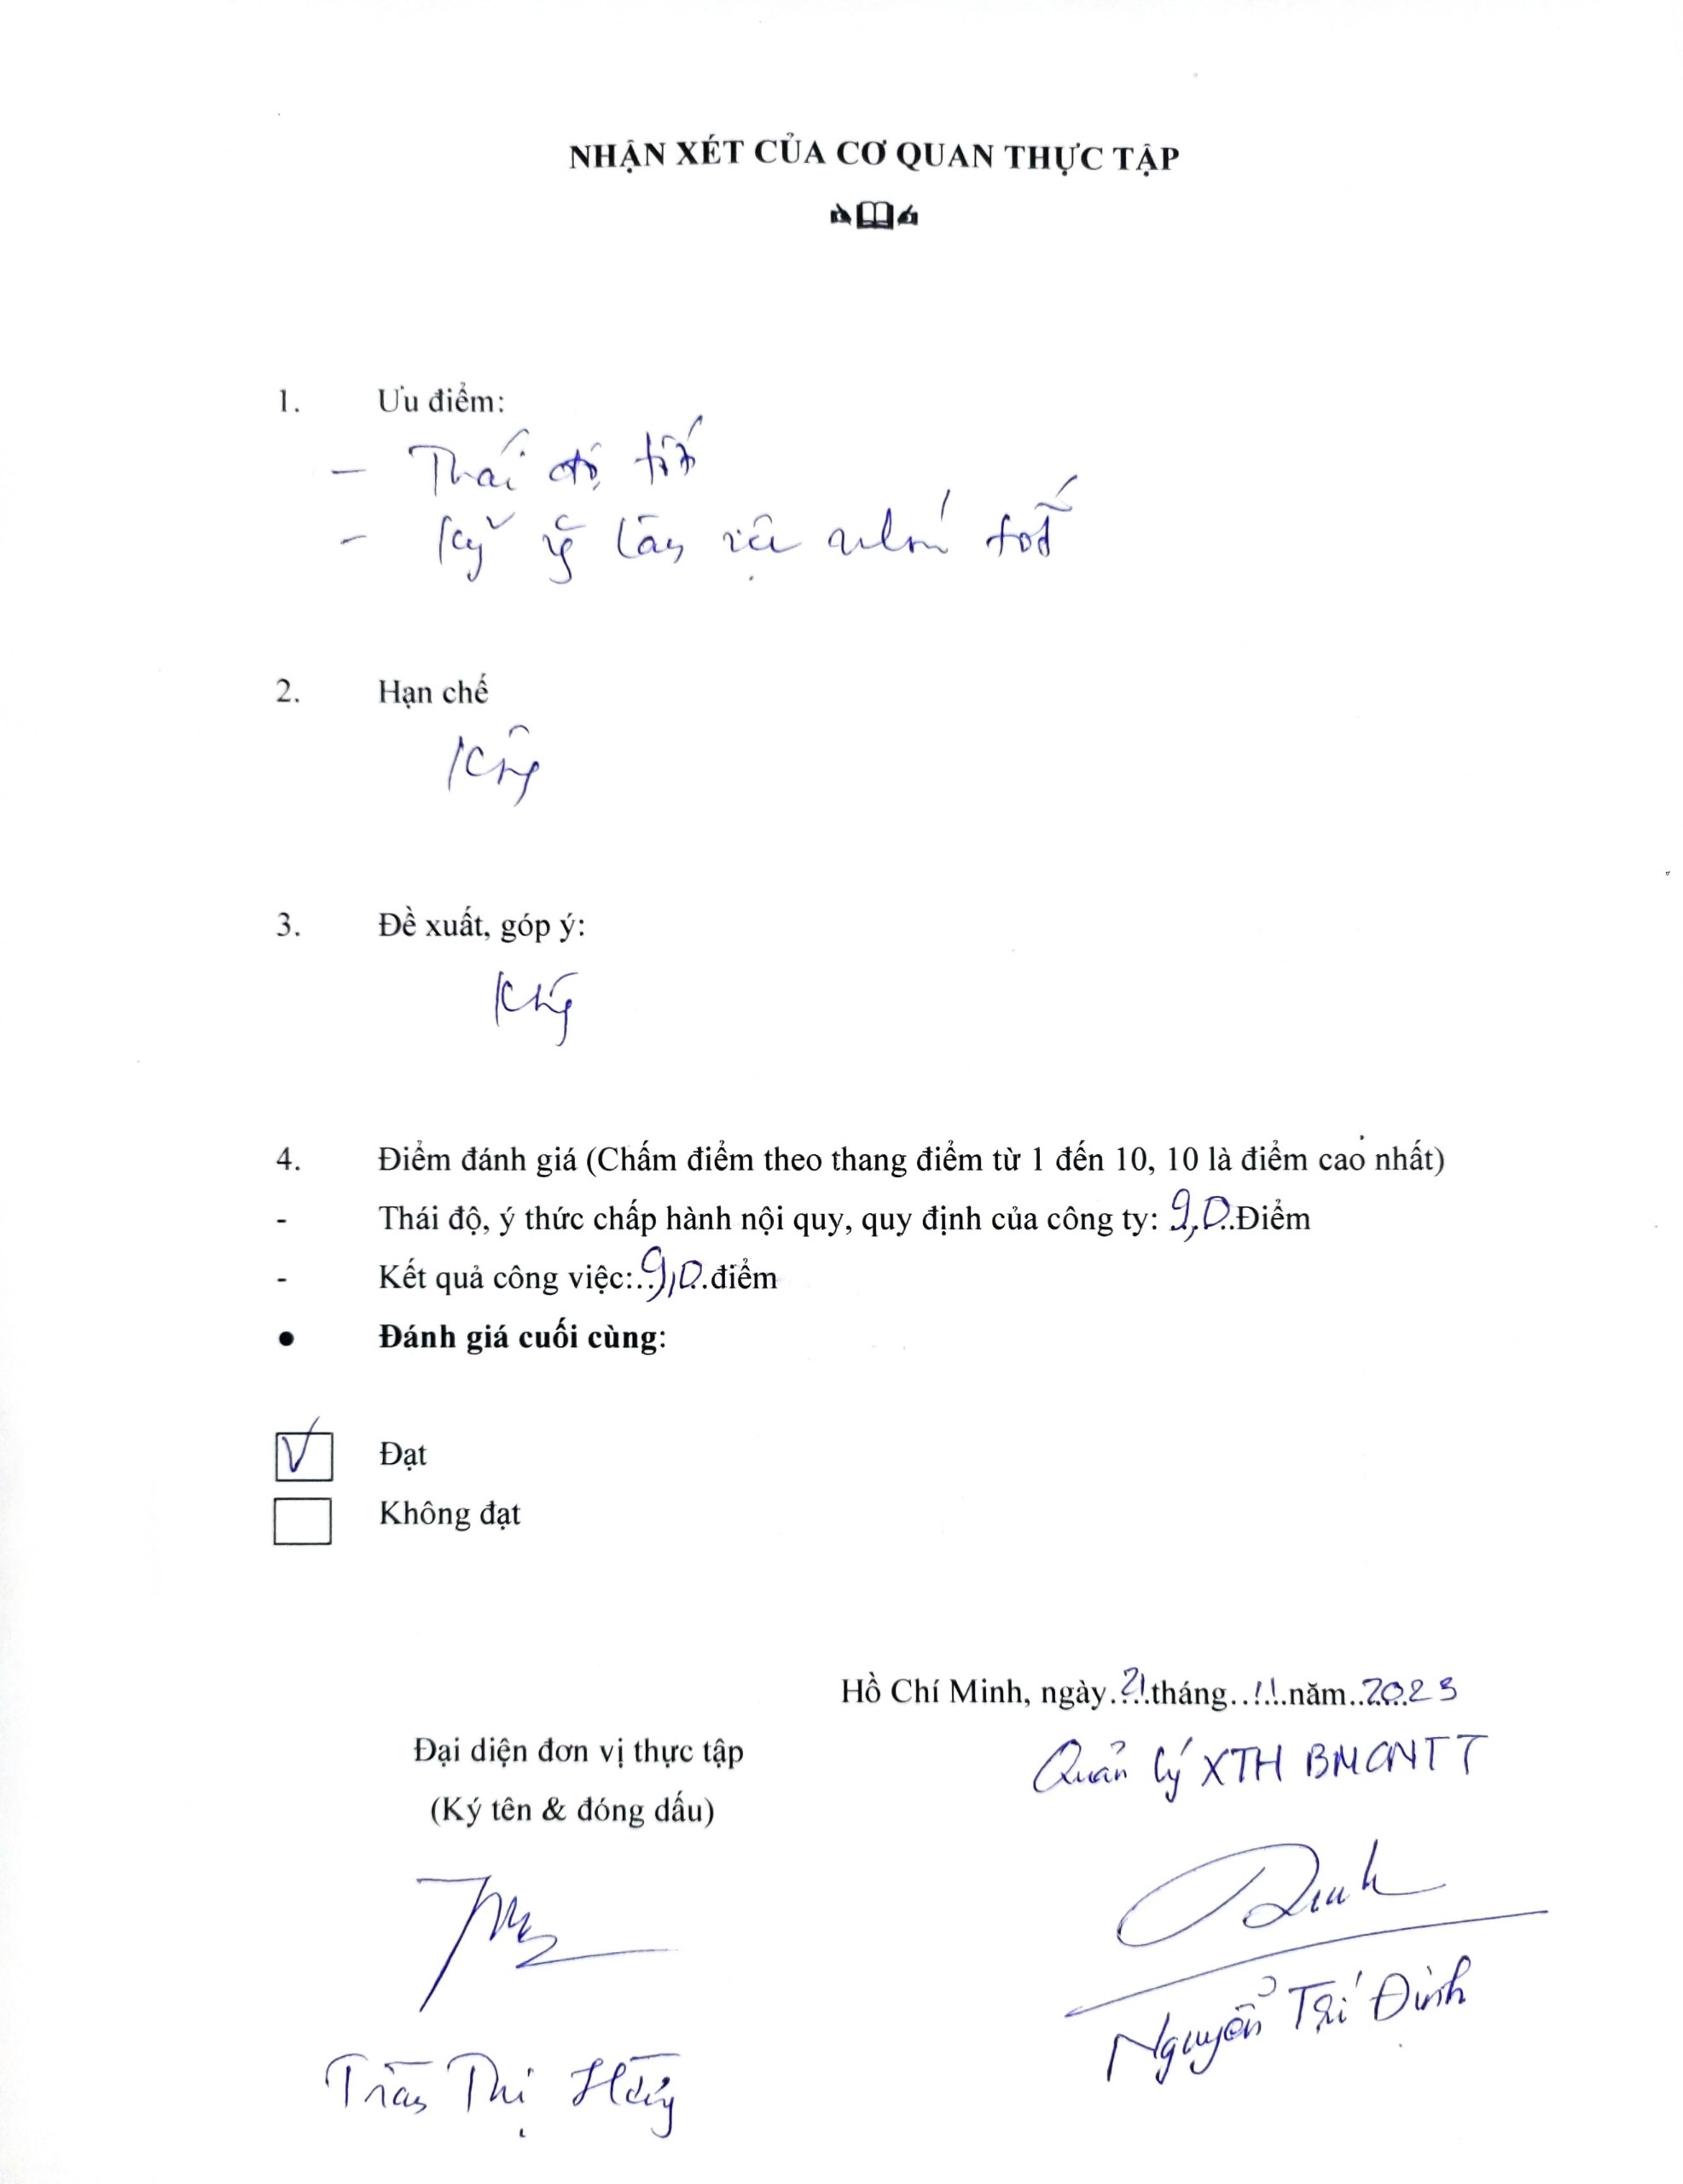 NHẬN XÉT CỦA CƠ QUAN THỰC TẬP
1. Ưu điểm:
- Thái độ tốt
- Kỹ làm việc nhóm tốt
2. Hạn chế
Không
3. Đề xuất, góp ý:
Không
4. Điểm đánh giá (Chấm điểm theo thang điểm từ 1 đến 10, 10 là điểm cao nhất)
- Thái độ, ý thức chấp hành nội quy, quy định của công ty: 9,0..Điểm
- Kết quả công việc:..9,0..điểm
● Đánh giá cuối cùng:
V Đạt
Không đạt
Hồ Chí Minh, ngày.21.tháng..11..năm..2023
Đại diện đơn vị thực tập
Quản lý XTH BMCNTT
(Ký tên & đóng dấu)
Dinh
Nguyễn Trí Định
Trần Thị